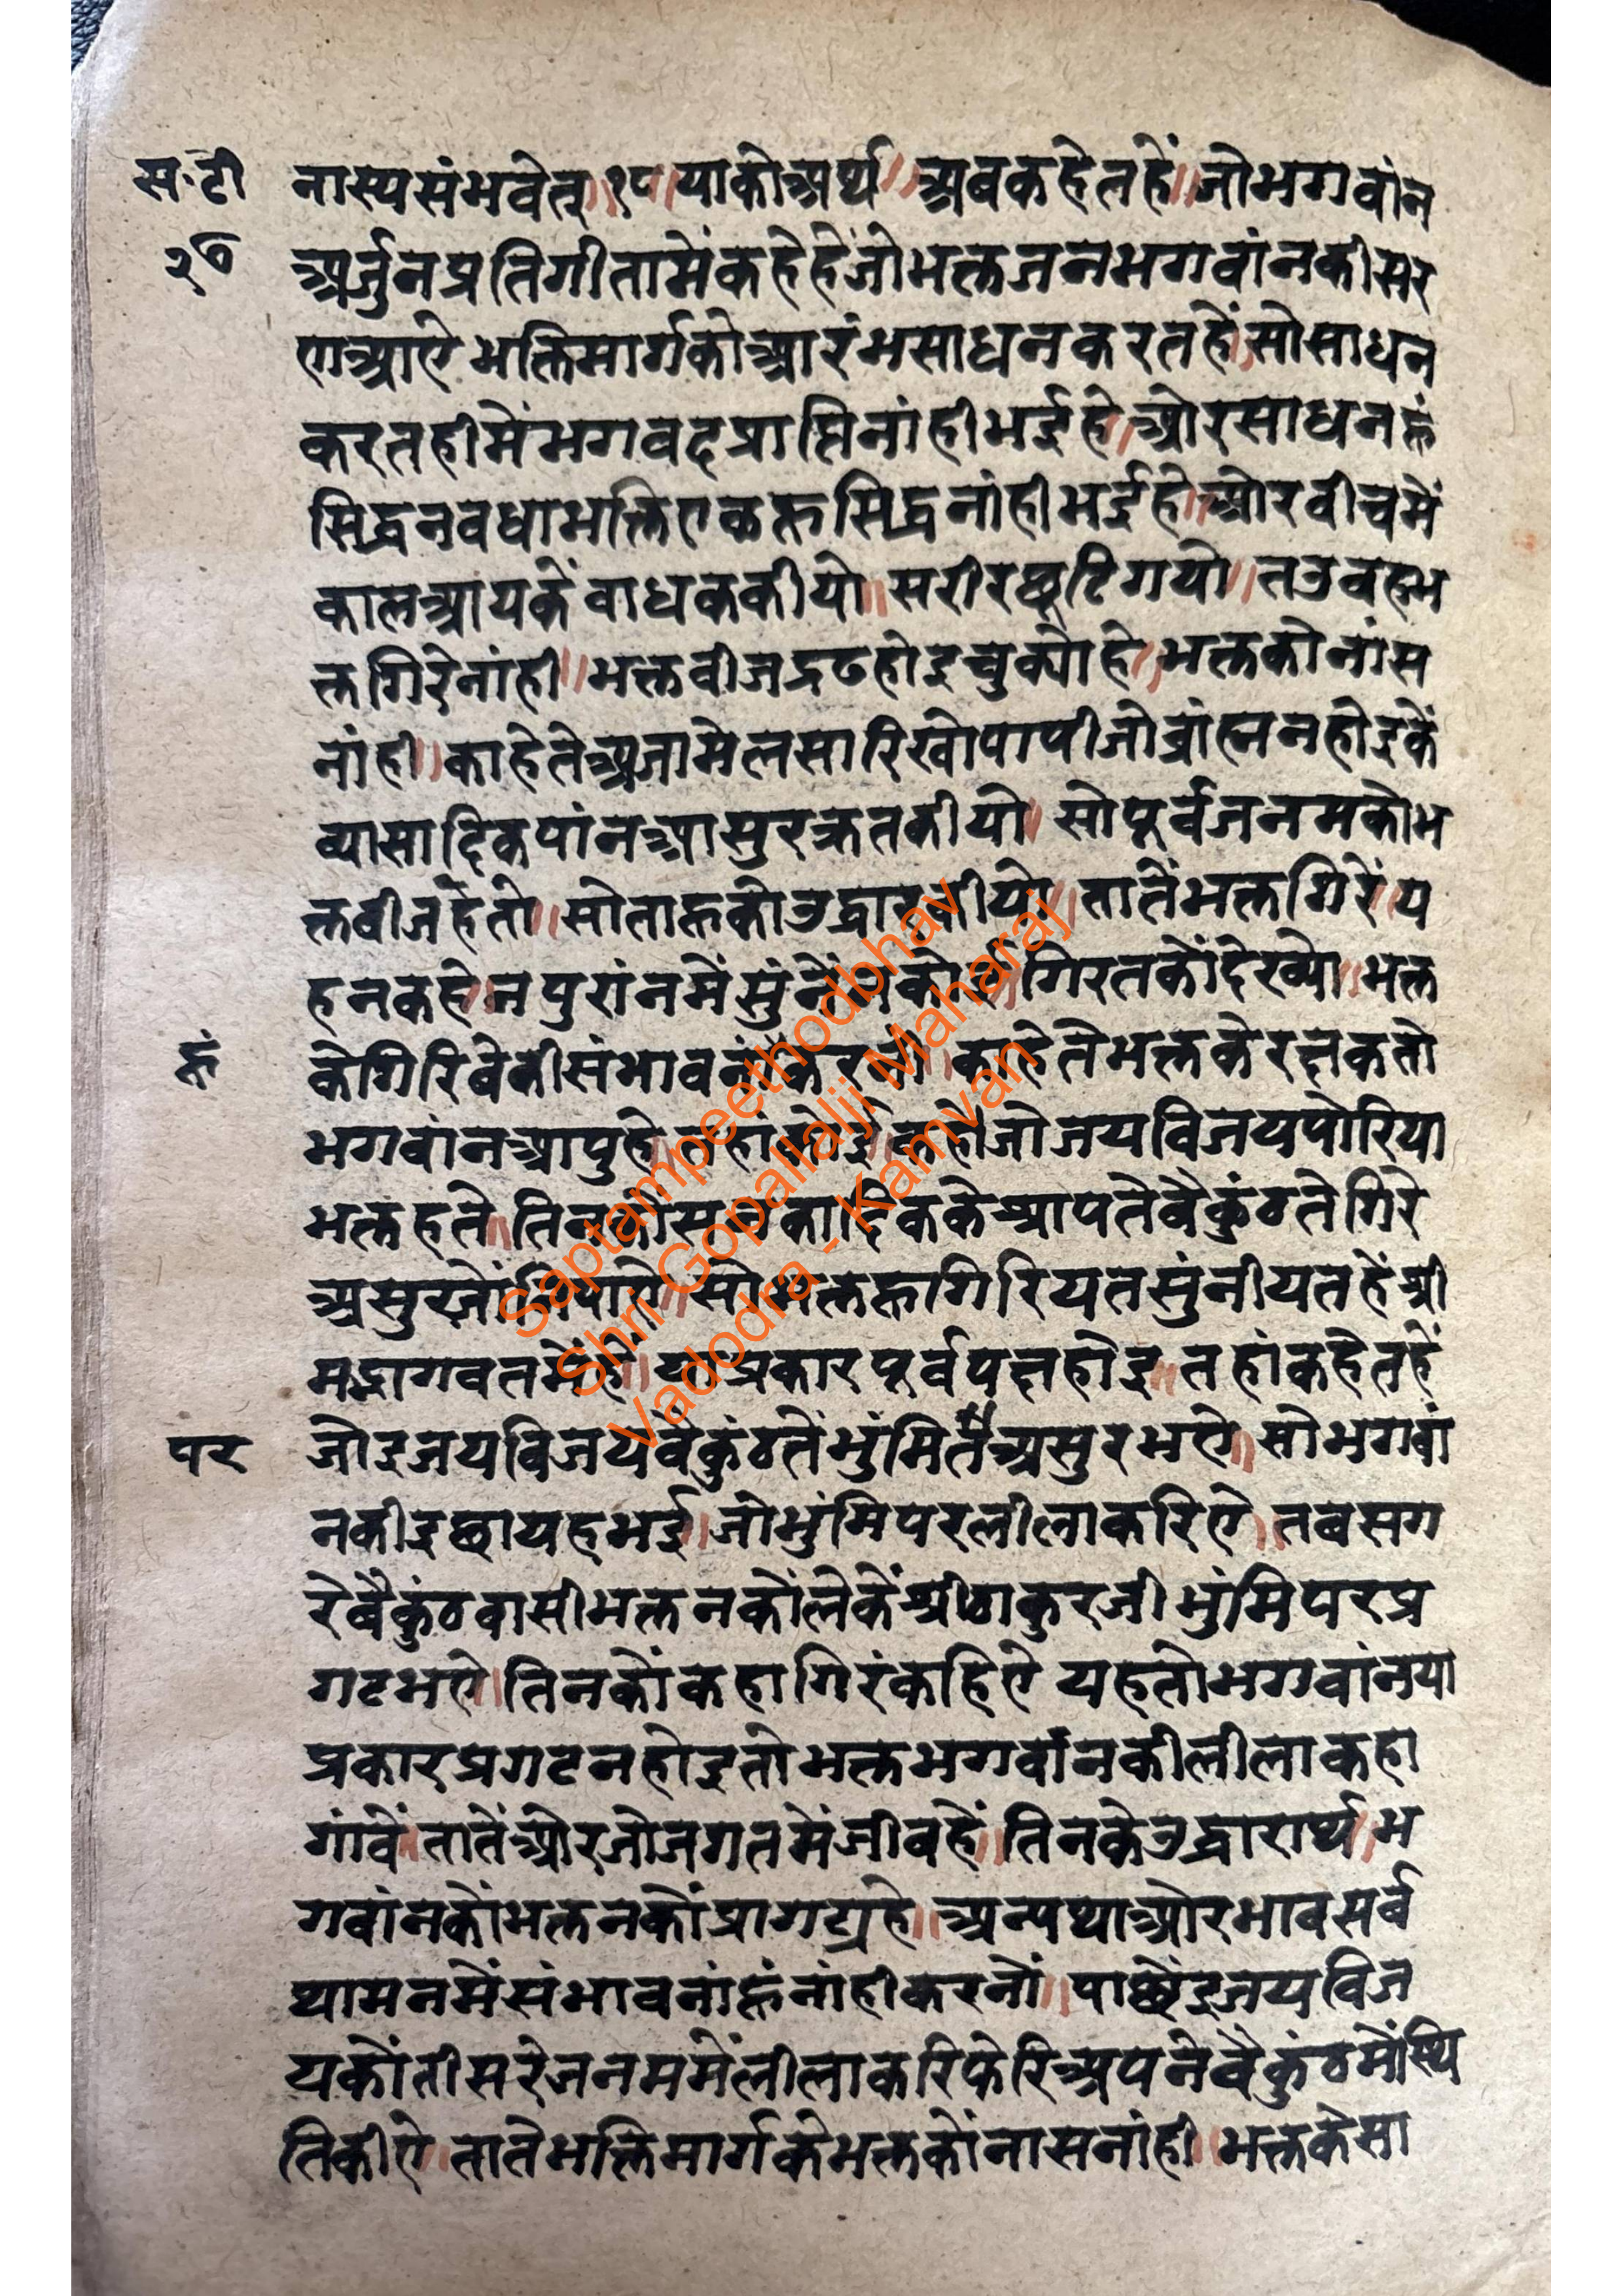 स॰टी
२७
नास्यसंभवेत्॥१८॥याकोअर्थ॥अबकहेतहें॥जोभगवांन
अर्जुनप्रतिगीतामेंकहेहेंजोभक्तजनभगवांनकीसर
णआऐभक्तिमार्गकोआरंभसाधनकरतहें।सोसाधन
करतहीमेंभगवदप्राप्तिनांहीभईहे।ओरसाधनहूं
सिद्धनवधाभक्तिएकहूसिद्धनांहीभईहे॥ओरवीचमें
कालआयकेंवाधककीयो॥सरीरछूटिगयो॥तउवहभ
क्तगिरेनांही॥भक्तवीजद्रढहोइचुक्योहे।भक्तकोनांस
नांही।काहेतेअजामेलसारिखोपापीजोब्रांह्मनहोइकें
व्यासादिकपांनआसुरक्रतकीयो॥सोपूर्वजनमकोभ
क्तवीजहतो॥सोताहूकोउद्धारकीयो॥तातेंभक्तगिरें॥य
हनकहे।नपुरांनमेंसुंनेंनकोई॥गिरतकोंदेख्यो॥भक्त
हूं
केगिरिवेकीसंभावनांकरनी।काहेतेभक्तकेरक्षकतो
भगवांनआपुहे।तहांकोई॥कहेजोजयविजयपोरिया
भक्तहते॥तिनकोंसनकादिककेश्रापतेवैकुंठतेगिरे
असुरजोंनिपाऐ॥सोभक्तहूगिरियतसुंनीयतहेंश्री
मद्भागवतमेंहें॥याप्रकारपूर्वपक्षहोइ॥तहांकहेतहें
पर
जोइजयविजयवैकुंठतेंभुंमितेंअसुरभऐ॥सोभगवां
नकीइछायहभई।जोभुंमिपरलीलाकरिऐ।तबसग
रेवैकुंठवासीभक्तनकोंलेकेंश्रीठाकुरजीभुंमिपरप्र
गटभऐ।तिनकोंकहागिरंकहिऐ यहतोभगवांनया
प्रकारप्रगटनहोइतोभक्तभगवांनकीलीलाकहा
गांवें॥तातेंओरजोजगतमेंजीवहें॥तिनकेउद्धारार्थ।भ
गवांनकोंभक्तनकोंप्रागट्यहे॥अन्यथाओरभावसर्व
थामनमेंसंभावनांहूंनांहीकरनों॥पाछेंइजयविज
यकोंतीसरेजनममेंलीलाकरिफेरिअपनेवैकुंठमेंस्थि
तिकीऐ।तातेभक्तिमार्गकेभक्तकोंनासनांही।भक्तकेसा
Saptampeethodbhav
Shri Gopallalji Maharaj
Vadodra - Kamvan